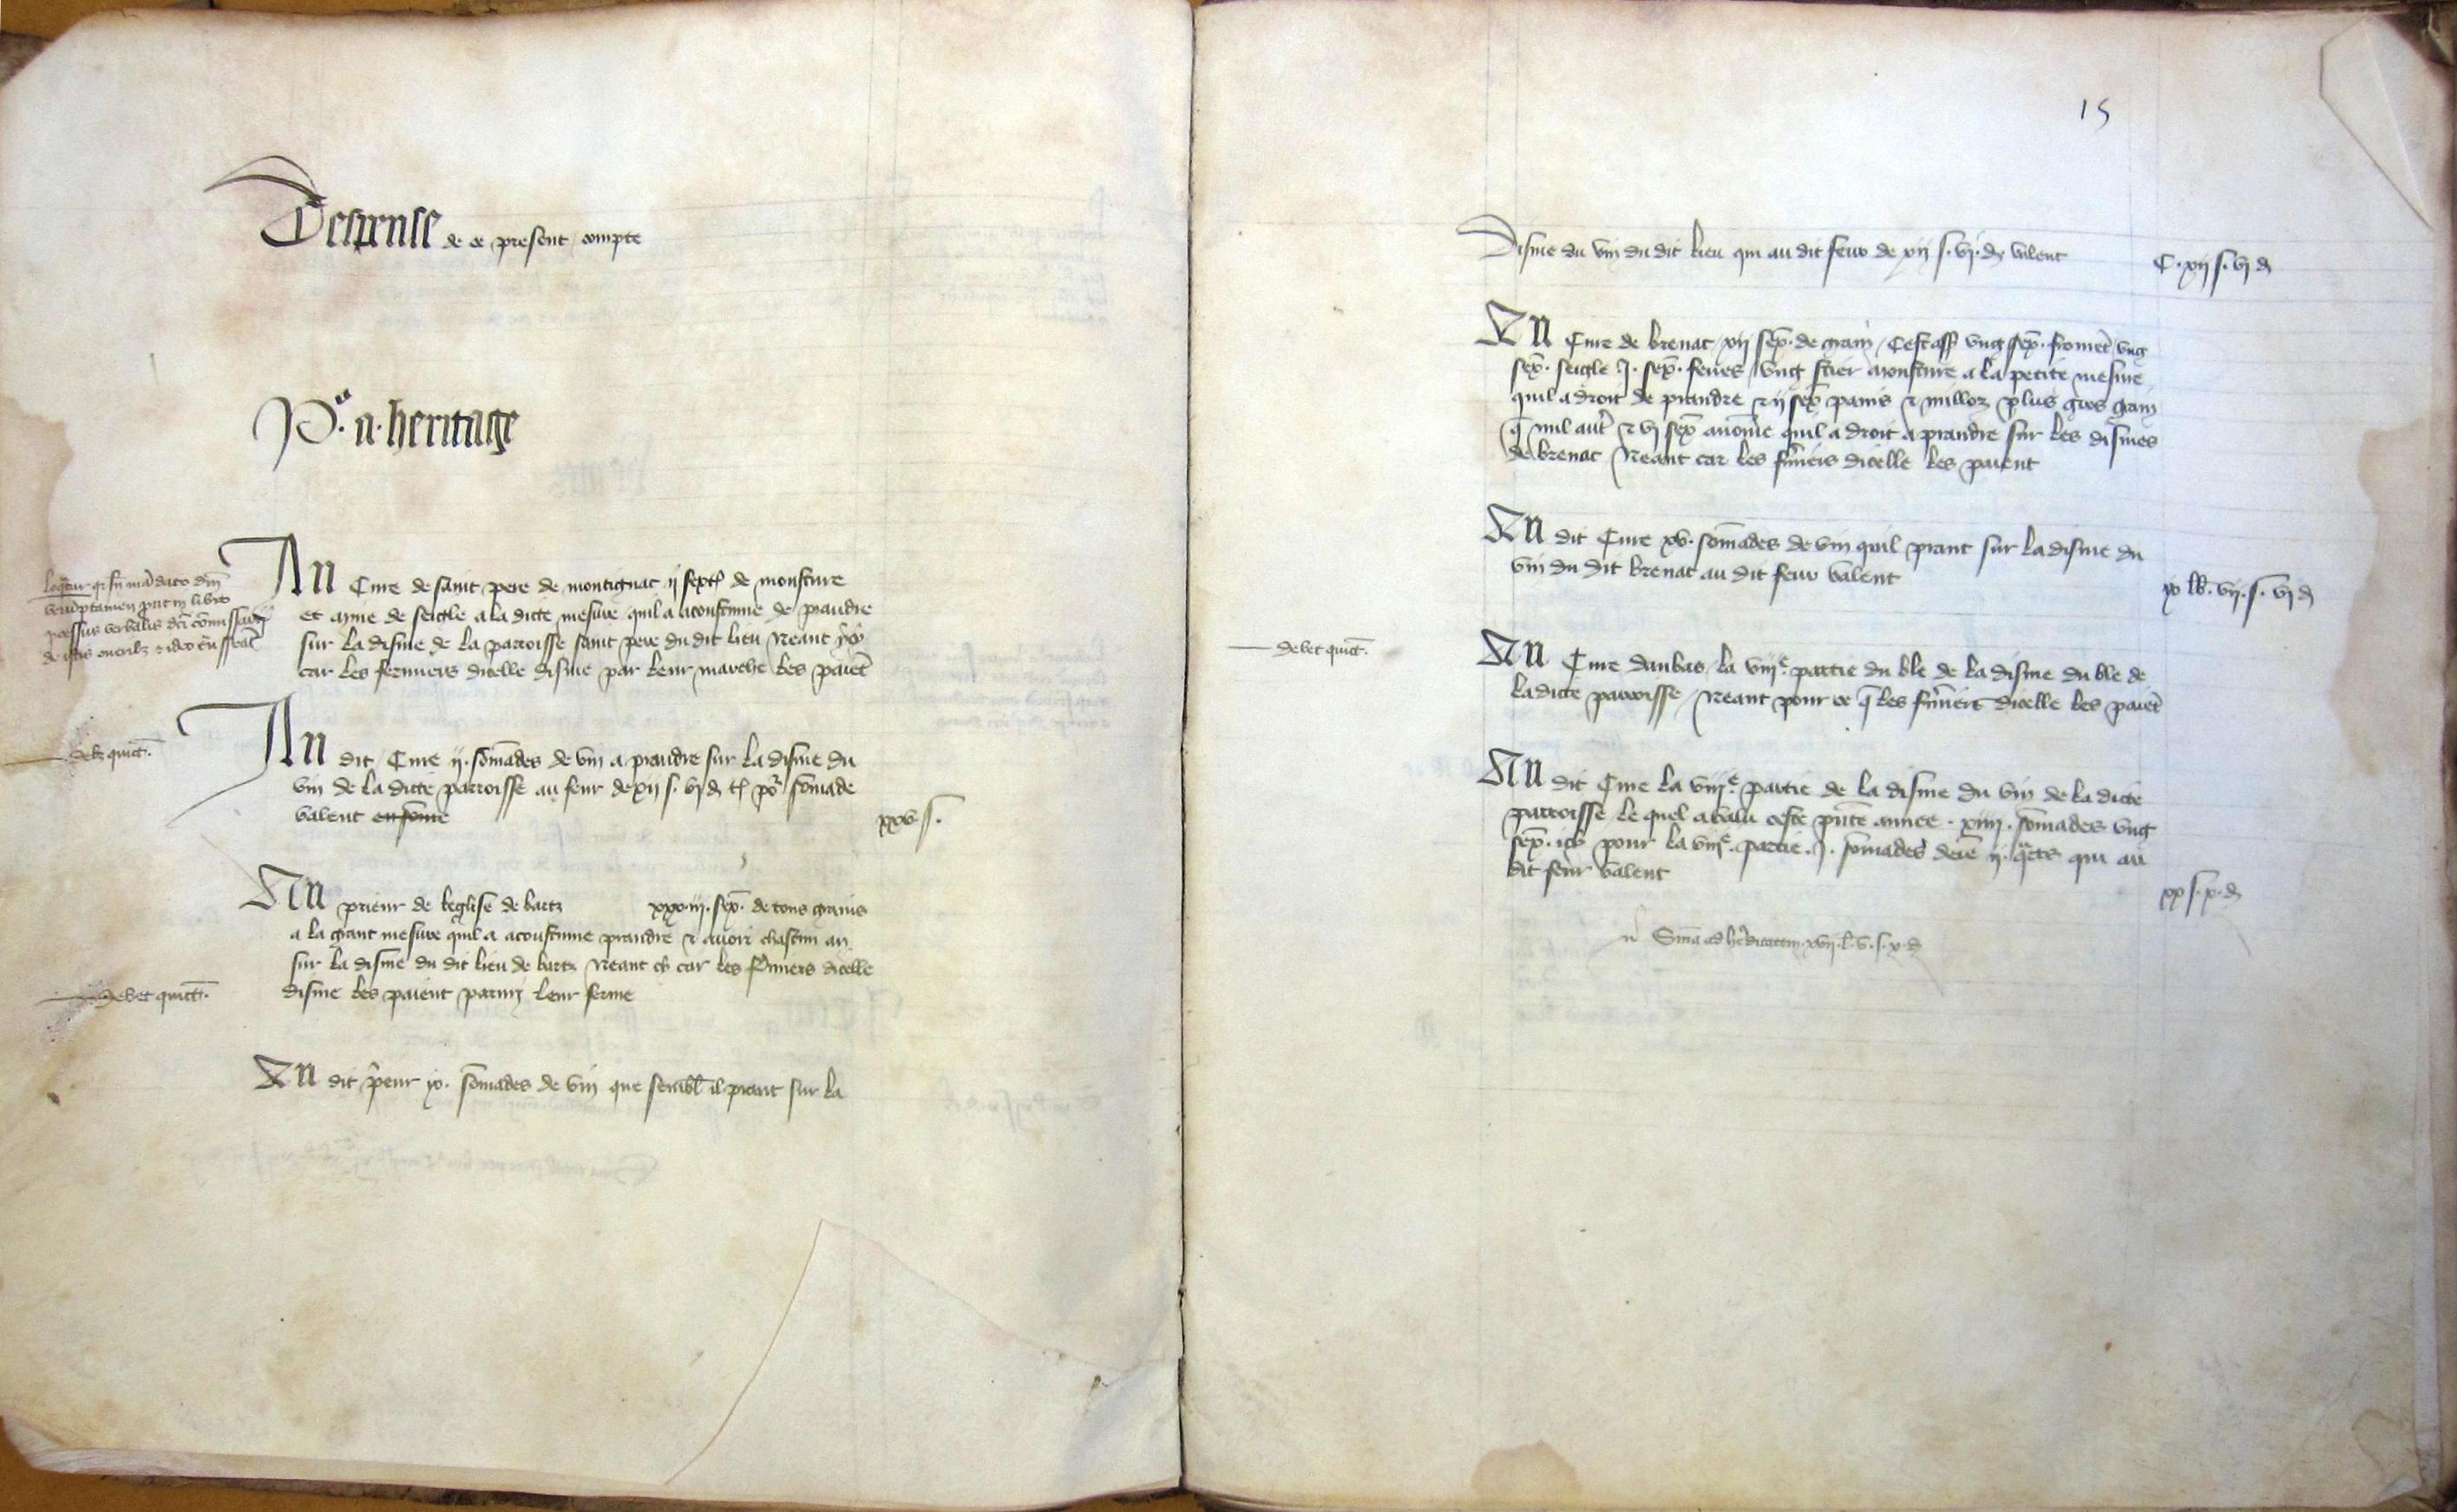 Despense de ce present compte
Pᵒ. a heritage
Au Cure de saint pere de montignac ii sextˢ de mousture
et ayme de seigle a la dicte mesure quil a acoustume de prandre
sur la disme de la parroisse saint pere du dit lieu Neant
car les fermiers dicelle disme par leur marche les paiet
Au dit Cure ii. somades de vin a prandre sur la disme du
vin de la dicte parroisse au feur de xii s. vi d. t. por somade
valent en some
xxv s.
debet quict.
Au prieur de leglise de bartz xxxiii. sex. de tous grains
a la grant mesure quil a acoustume prandre & avoir chascun an
sur la disme du dit lieu de bartz Neant car les fmiers dicelle
disme les paient parmy leur ferme
debet quict.
Au dit prieur ix. somades de vin que sembl il prant sur la
15
Disme du vin du dit lieu qui au dit feur de xii s. vi. d. valent
C. xii s. vi d
Au Cure de brenac xii sex. de grain Cestass ung sex. fromet ung
sex. seigle J. sex. feves ung stier mousture a la petite mesure
quil a droit de prandre & ii sex panis & milloz plus gros grain
q nul autr & vi sex avoine quil a droit a prandre sur les dismes
de brenac Neant car les fmiers dicelle les paient
Au dit Cure xv. somades de vin quil prant sur la disme du
vin du dit brenac au dit feur valent
ix lb. vii. s. vi d
debet quict.
Au Cure daubas la viiiᵉ. partie du ble de la disme du ble de
la dicte parroisse Neant pour ce q les fmiers dicelle les paiet
Au dit Cure la viiiᵉ. partie de la disme du vin de la dicte
parroisse le quel a valu ceste pnte annee. xiiii. somades ung
sex. pour la viiiᵉ. partie. J. somades ii. qrts qui au
dit feur valent
xx s. x. d
Sma ad heditatem. xvii. l. v. s. x. d